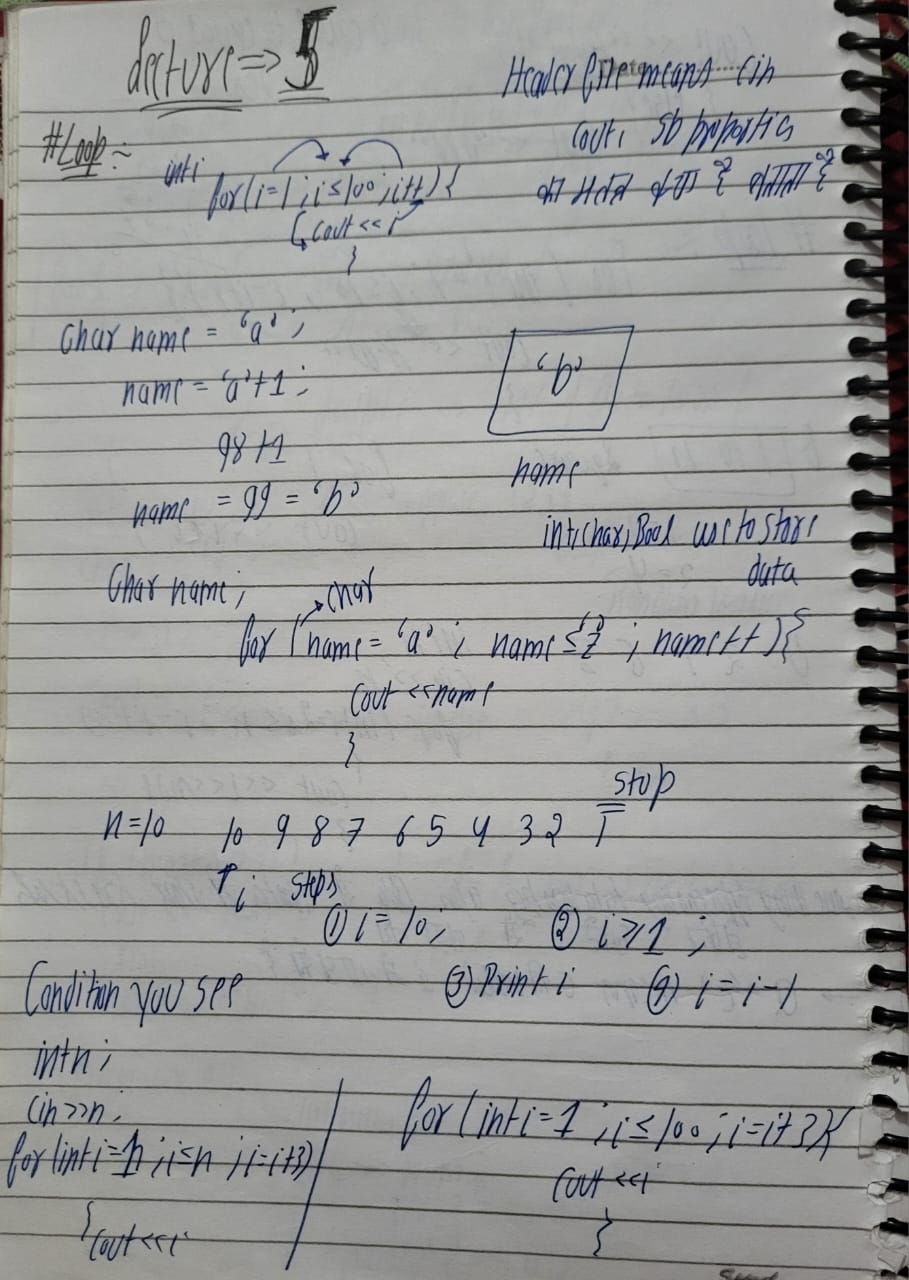 Lecture => 5
Header file means cin
cout, sb properties
का मतलब
#Loop :-
int i
for(i=1 ; i≤100 ; i++) {
cout << i
}
Char name = 'a' ;
name = 'a'+1 ;
98 +1
name = 99 = 'b'
'b'
name
int, char, Bool use to store
data
Char name ;
char
for (name = 'a' ; name ≤ 'z' ; name++ ) {
cout <<name
}
stop
n=10 10 9 8 7 6 5 4 3 2 1
i steps
① i = 10; ② i ≥ 1 ;
③ Print i ④ i = i-1
Condition you see
int n ;
cin >>n ;
for (int i=1 ; i≤n ; i=i+3)
{ cout <<i
for ( int i=1 ; i≤100 ; i=i+3){
cout <<i
}